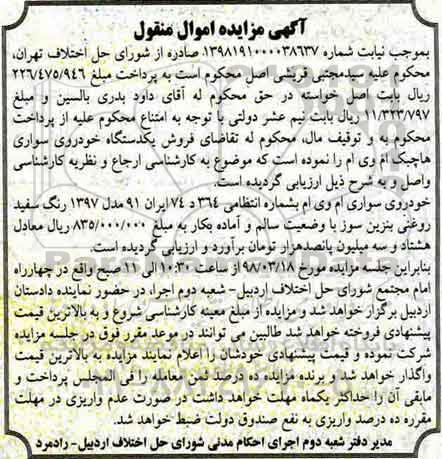 آگهی مزایده اموال منقول
بموجب نیابت شماره ۱۳۹۸۱۹۱۰۰۰۰۳۸۶۳۷ صادره از شورای حل اختلاف تهران،
محکوم علیه سیدمجتبی قریشی اصل محکوم است به پرداخت مبلغ ۲۲۶/۴۷۵/۹۴۶
ریال بابت اصل خواسته در حق محکوم له آقای داود بدری بالسین و مبلغ
۱۱/۳۲۳/۷۹۷ ریال بابت نیم عشر دولتی با توجه به امتناع محکوم علیه از پرداخت
محکوم به و توقیف مال، محکوم له تقاضای فروش یکدستگاه خودروی سواری
هاچبک ام وی ام را نموده است که موضوع به کارشناسی ارجاع و نظریه کارشناسی
واصل و به شرح ذیل ارزیابی گردیده است.
خودروی سواری ام وی ام بشماره انتظامی ۳۶۴ د ۷۴ ایران ۹۱ مدل ۱۳۹۷ رنگ سفید
روغنی بنزین سوز با وضعیت سالم و آماده بکار به مبلغ ۸۳۵/۰۰۰/۰۰۰ ریال معادل
هشتاد و سه میلیون پانصدهزار تومان برآورد و ارزیابی گردیده است.
بنابراین جلسه مزایده مورخ ۹۸/۰۳/۱۸ از ساعت ۱۰:۳۰ الی ۱۱ صبح واقع در چهارراه
امام مجتمع شورای حل اختلاف اردبیل- شعبه دوم اجرا، در حضور نماینده دادستان
اردبیل برگزار خواهد شد و مزایده از مبلغ معینه کارشناسی شروع و به بالاترین قیمت
پیشنهادی فروخته خواهد شد طالبین می توانند در موعد مقرر فوق در جلسه مزایده
شرکت نموده و قیمت پیشنهادی خودشان را اعلام نمایند مزایده به بالاترین قیمت
واگذار خواهد شد و برنده مزایده ده درصد ثمن معامله را فی المجلس پرداخت و
مابقی آن را حداکثر یکماه مهلت خواهد داشت در صورت عدم واریزی در مهلت
مقرره ده درصد واریزی به نفع صندوق دولت ضبط خواهد شد.
مدیر دفتر شعبه دوم اجرای احکام مدنی شورای حل اختلاف اردبیل- رادمرد